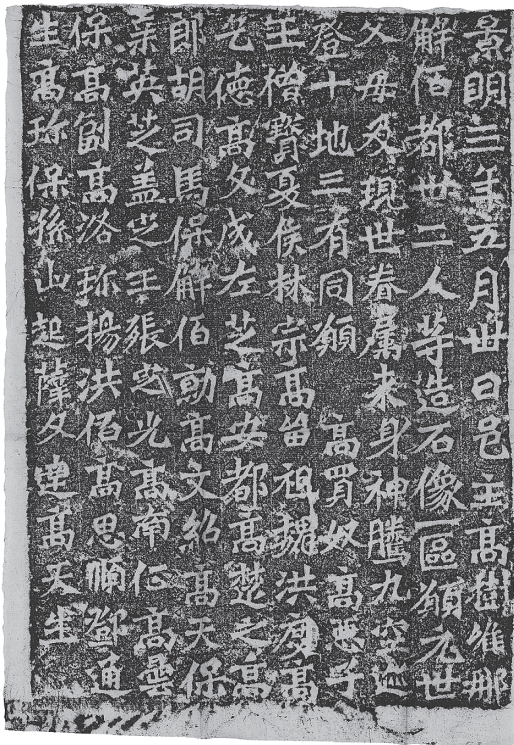 景明三年五月卅日邑主高樹唯那
解佰都卅二人等造石像一區願元世
父母及現世眷屬来身神騰九空迹
登十地三有同願 高買奴高惡子
王僧寶夏侯林宗高留祖魏洪度高
乞德高文成左芝高安都高楚之高
郎胡司馬保解佰勳高文紹高天保
蓋芝王張光高南高曇
保高高洛珎楊洪佰高思順鄧通
生高珎保孫山起薩文達高天生